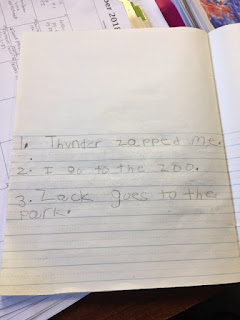 ber 2015
1. Thunder zapped me.
2. I go to the zoo.
3. Zack goes to the
park.